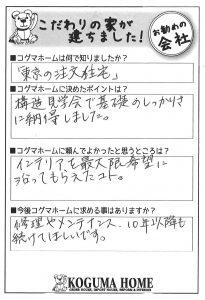 こだわりの家が
建ちました!
お勧めの
会社
■コグマホームは何で知りましたか?
「東京の注文住宅」
■コグマホームに決めたポイントは?
構造見学会で基礎のしっかりさ
に納得しました。
■コグマホームに頼んでよかったと思うところは?
インテリアも最大限希望に
沿ってもらえたこと。
■今後コグマホームに求める事はありますか?
修理やメンテナンス、10年以降も
続けてほしいです。
KOGUMA HOME